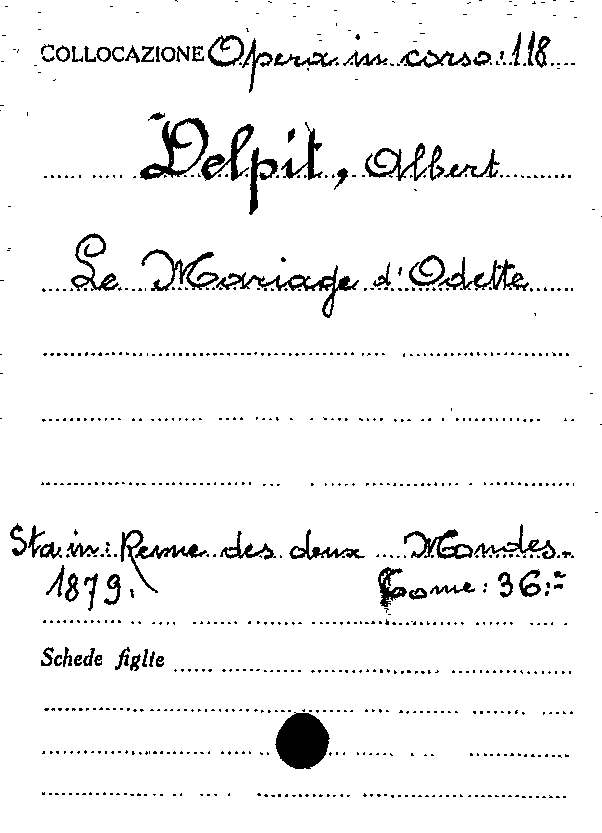 COLLOCAZIONE Opera in corso: 118
Delpit, Albert
Le Mariage d'Odette
Sta in: Revue des deux Mondes.
1879. Tome: 36:º
Schede figlie